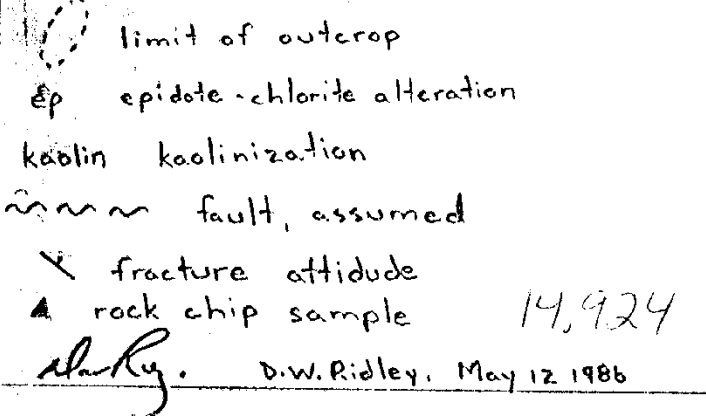 limit of outcrop
ep epidote-chlorite alteration
kaolin kaolinization
fault, assumed
fracture attidude
rock chip sample 14,924
D.W. Ridley, May 12 1986